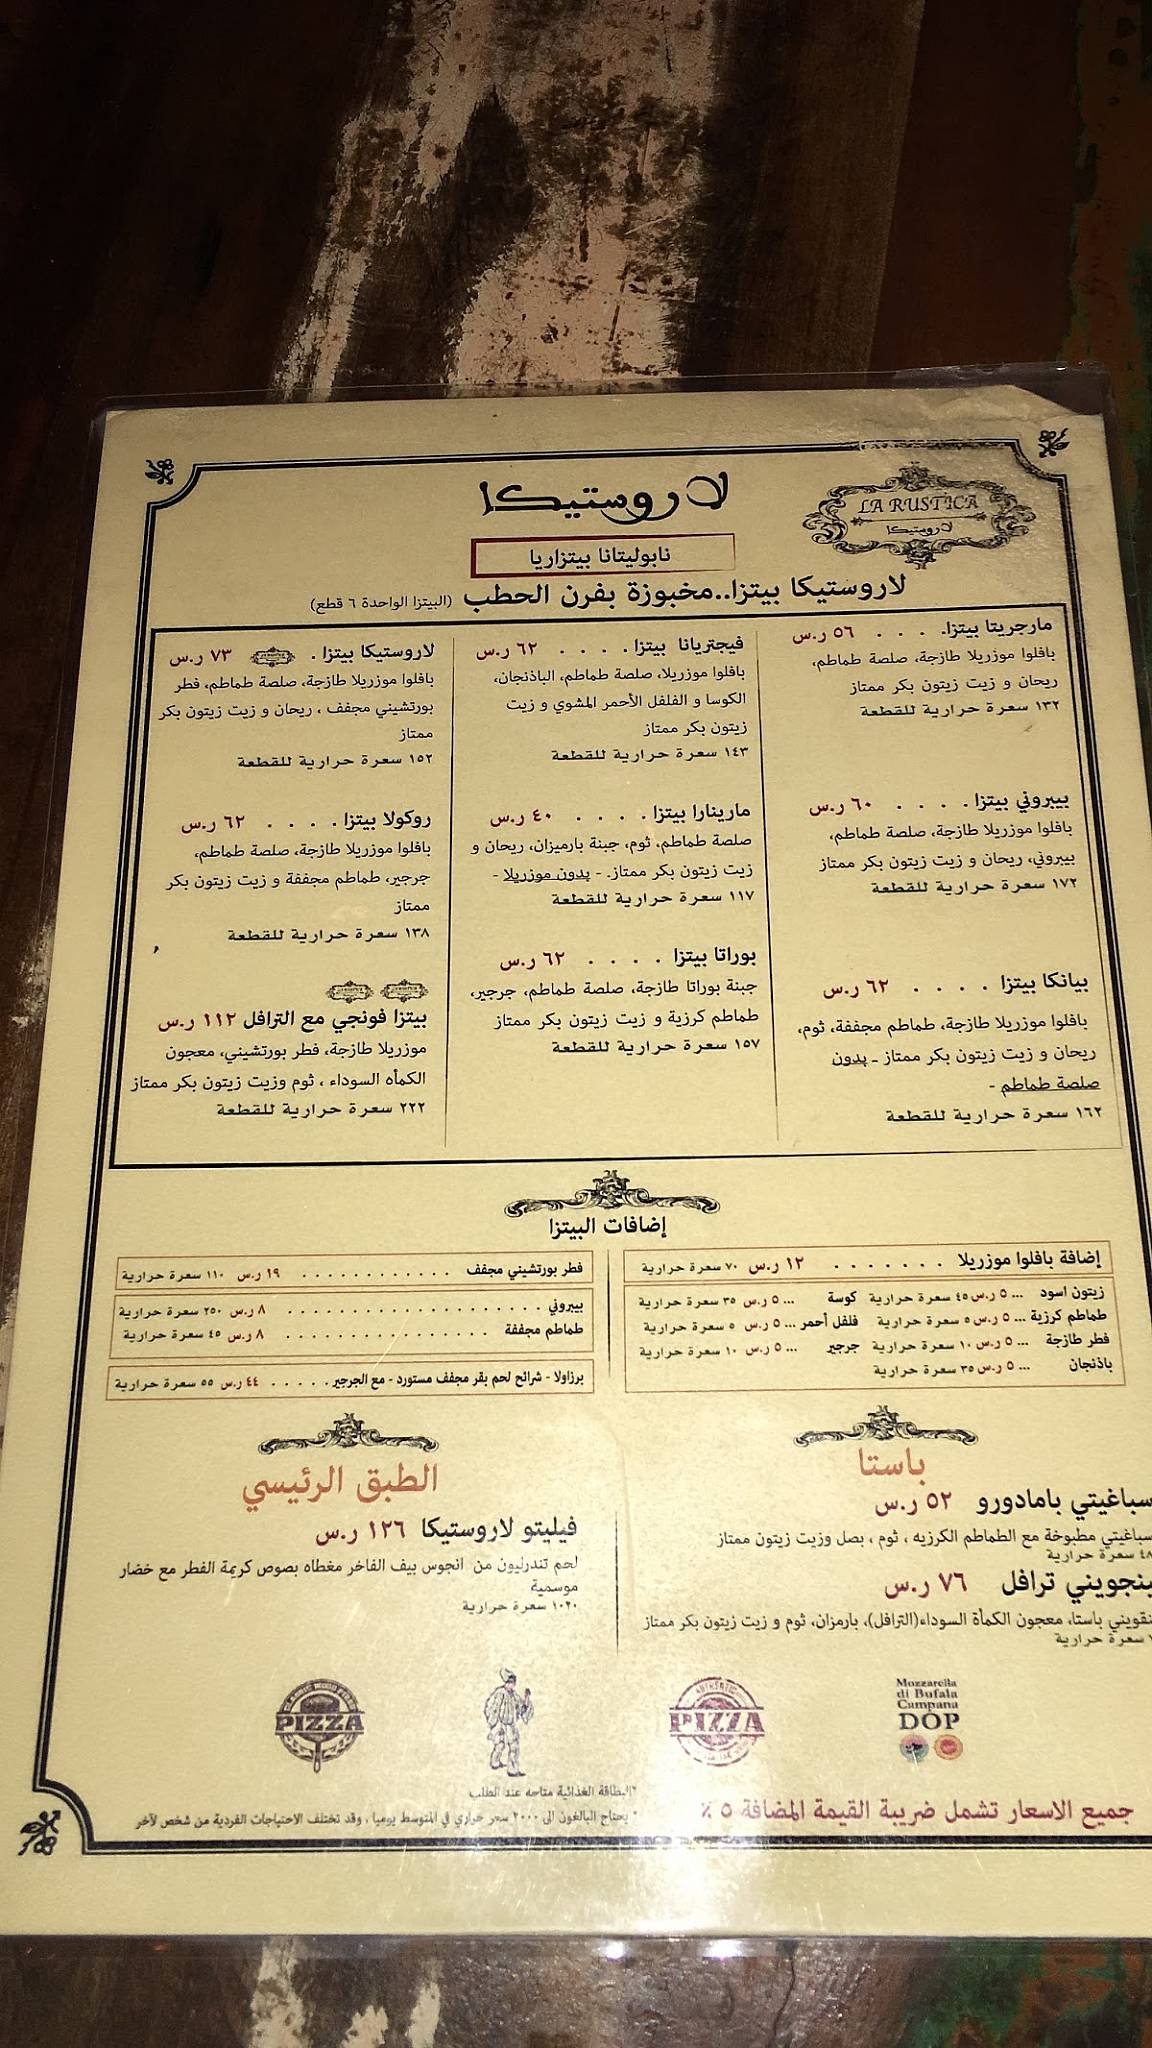 لاروستيكا
LA RUSTICA
لاروستيكا
نابوليتانا بيتزاريا
لاروستيكا بيتزا..مخبوزة بفرن الحطب (البيتزا الواحدة ٦ قطع)
مارجريتا بيتزا. . . . ٥٦ ر.س
بافلوا موزريلا طازجة، صلصة طماطم،
ريحان و زيت زيتون بكر ممتاز
١٣٢ سعرة حرارية للقطعة
بيبروني بيتزا . . . . ٦٠ ر.س
بافلوا موزريلا طازجة، صلصة طماطم،
بيبروني، ريحان و زيت زيتون بكر ممتاز
١٧٢ سعرة حرارية للقطعة
بيانكا بيتزا . . . . ٦٢ ر.س
بافلوا موزريلا طازجة، طماطم مجففة، ثوم،
ريحان و زيت زيتون بكر ممتاز - بدون
صلصة طماطم -
١٦٢ سعرة حرارية للقطعة
فيجتريانا بيتزا . . . . ٦٢ ر.س
بافلوا موزريلا، صلصة طماطم، الباذنجان،
الكوسا و الفلفل الأحمر المشوي و زيت
زيتون بكر ممتاز
١٤٣ سعرة حرارية للقطعة
مارينارا بيتزا . . . . ٤٠ ر.س
صلصة طماطم، ثوم، جبنة بارميزان، ريحان و
زيت زيتون بكر ممتاز. - بدون موزريلا -
١١٧ سعرة حرارية للقطعة
بوراتا بيتزا . . . . ٦٢ ر.س
جبنة بوراتا طازجة، صلصة طماطم، جرجير،
طماطم كرزية و زيت زيتون بكر ممتاز
١٥٧ سعرة حرارية للقطعة
لاروستيكا بيتزا . ٧٣ ر.س
بافلوا موزريلا طازجة، صلصة طماطم، فطر
بورتشيني مجفف ، ريحان و زيت زيتون بكر
ممتاز
١٥٢ سعرة حرارية للقطعة
روكولا بيتزا . . . . ٦٢ ر.س
بافلوا موزريلا طازجة، صلصة طماطم،
جرجير، طماطم مجففة و زيت زيتون بكر
ممتاز
١٣٨ سعرة حرارية للقطعة
بيتزا فونجي مع الترافل ١١٢ ر.س
موزريلا طازجة، فطر بورتشيني، معجون
الكمأه السوداء ، ثوم وزيت زيتون بكر ممتاز
٢٢٢ سعرة حرارية للقطعة
إضافات البيتزا
إضافة بافلوا موزريلا . . . . . . . ١٢ ر.س ٧٠ سعرة حرارية
زيتون اسود ... ٥ ر.س ٤٥ سعرة حرارية كوسة ... ٥ ر.س ٣٥ سعرة حرارية
طماطم كرزية ... ٥ ر.س ٥ سعرة حرارية فلفل أحمر ... ٥ ر.س ٥ سعرة حرارية
فطر طازجة ... ٥ ر.س ١٠ سعرة حرارية جرجير ... ٥ ر.س ١٠ سعرة حرارية
باذنجان ... ٥ ر.س ٣٥ سعرة حرارية
فطر بورتشيني مجفف . . . . . . . . . . . . ١٩ ر.س ١١٠ سعرة حرارية
بيبروني . . . . . . . . . . . . . . . . . . . . ٨ ر.س ٢٥٠ سعرة حرارية
طماطم مجففة . . . . . . . . . . . . . . . . ٨ ر.س ٤٥ سعرة حرارية
برزاولا - شرائح لحم بقر مجفف مستورد - مع الجرجير . . . . . . ٤٤ ر.س ٥٥ سعرة حرارية
باستا
سباغيتي بامادورو ٥٢ ر.س
سباغيتي مطبوخة مع الطماطم الكرزيه ، ثوم ، بصل وزيت زيتون ممتاز
سعرة حرارية
ترافل ٧٦ ر.س
باستا، معجون الكمأة السوداء(الترافل)، بارمزان، ثوم و زيت زيتون بكر ممتاز
سعرة حرارية
الطبق الرئيسي
فيليتو لاروستيكا ١٢٦ ر.س
لحم تندرليون من انجوس بيف الفاخر مغطاه بصوص كريمة الفطر مع خضار
موسمية
١٠٢٠ سعرة حرارية
CLASSIC WOOD FIRED
PIZZA
AUTHENTIC
PIZZA
Mozzarella
di Bufala
Campana
DOP
*البطاقة الغذائية متاحه عند الطلب
* يحتاج البالغون الى ٢٠٠٠ سعر حراري في المتوسط يوميا ، وقد تختلف الاحتياجات الفردية من شخص لآخر
جميع الاسعار تشمل ضريبة القيمة المضافة ٥ ٪